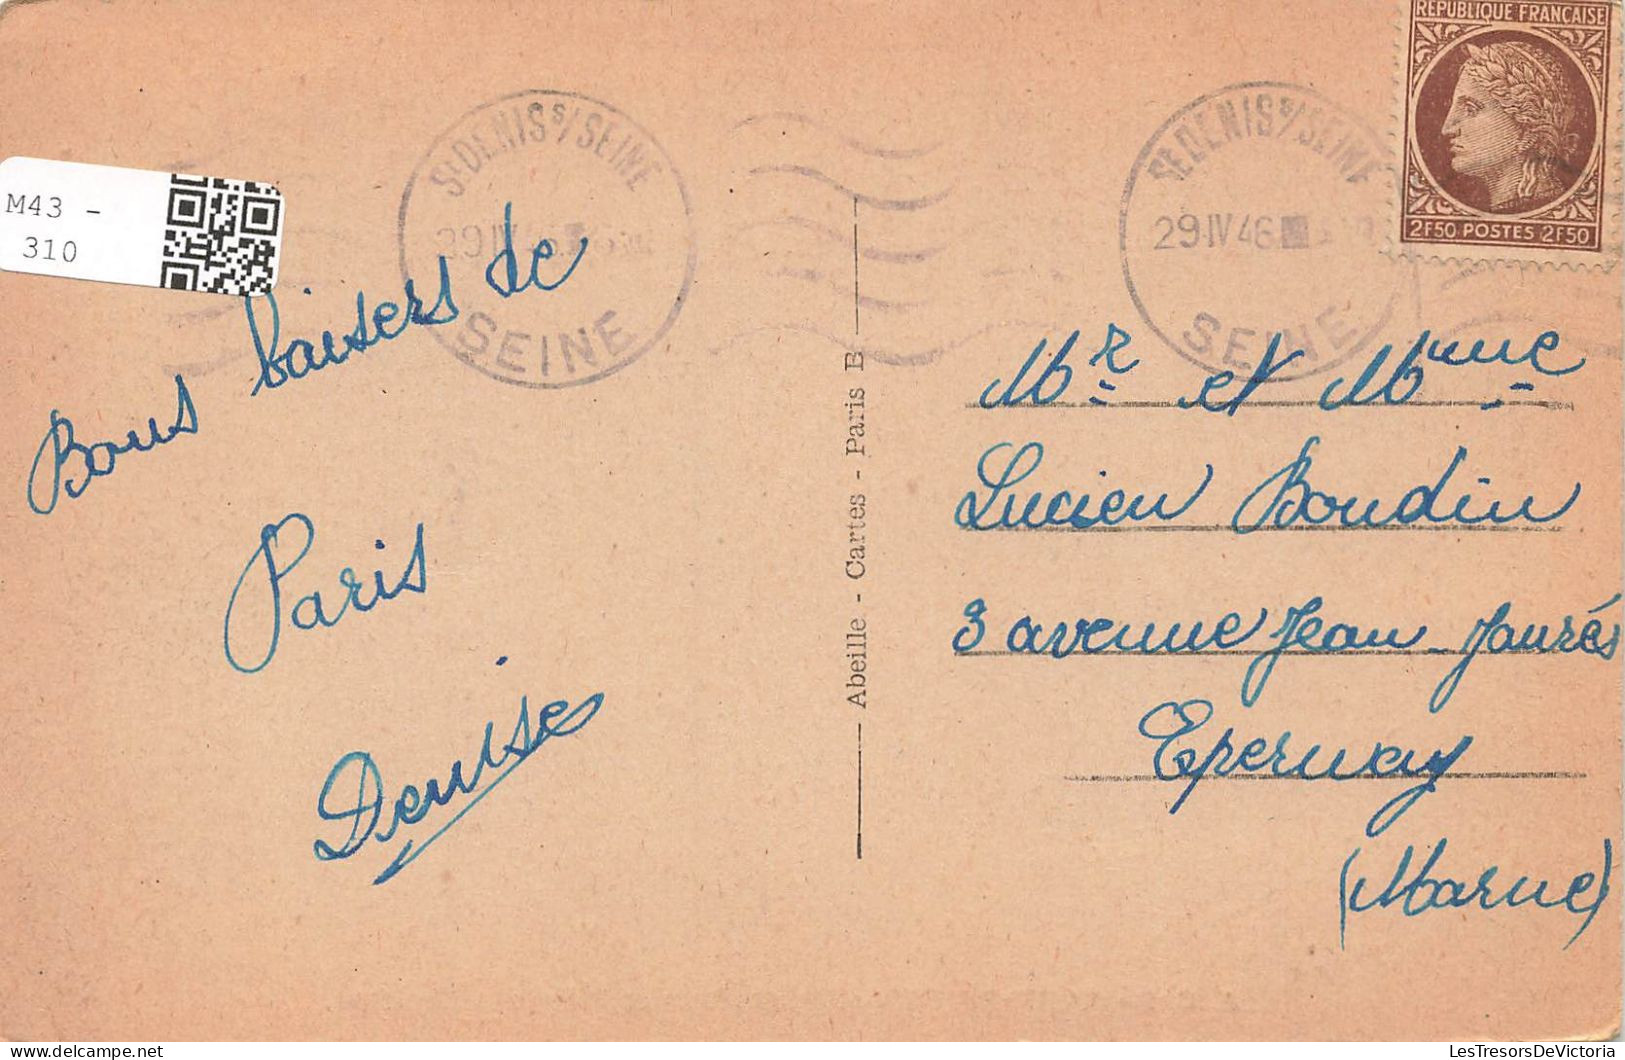 RÉPUBLIQUE FRANÇAISE
2F50 POSTES 2F50
M43 -
310
ST DENIS S/SEINE
29 IV 46
SEINE
ST DENIS S/SEINE
29 IV 46
SEINE
Bons baisers de
Paris
Denise
Abeille - Cartes - Paris B
Mr et Mme
Lucien Boudin
3 avenue Jean-Jaurés
Epernay
(Marne)
LesTresorsDeVictoria